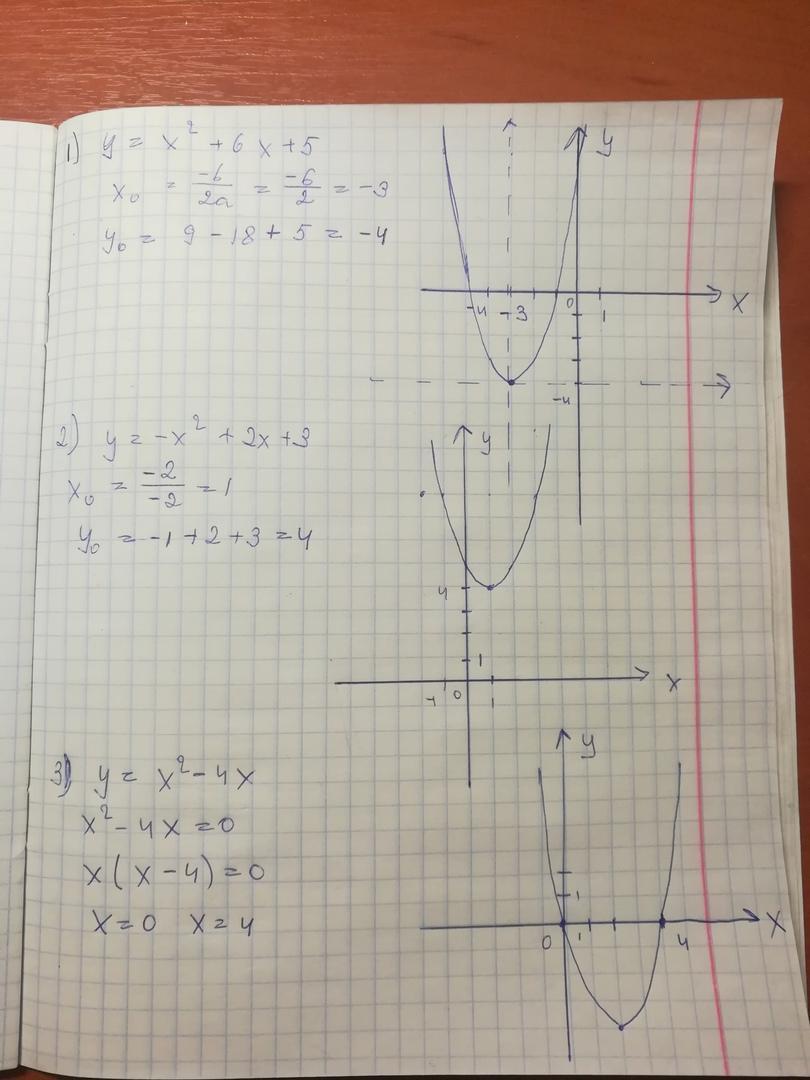 1) y = x² + 6x + 5
x₀ = -6/2a = -6/2 = -3
y₀ = 9 - 18 + 5 = -4
y
-4 -3 0 1 x
-4
2) y = -x² + 2x + 3
x₀ = -2/-2 = 1
y₀ = -1 + 2 + 3 = 4
y
4
1
-1 0 1 x
3) y = x² - 4x
x² - 4x = 0
x(x - 4) = 0
x = 0 x = 4
y
1
0 1 4 x